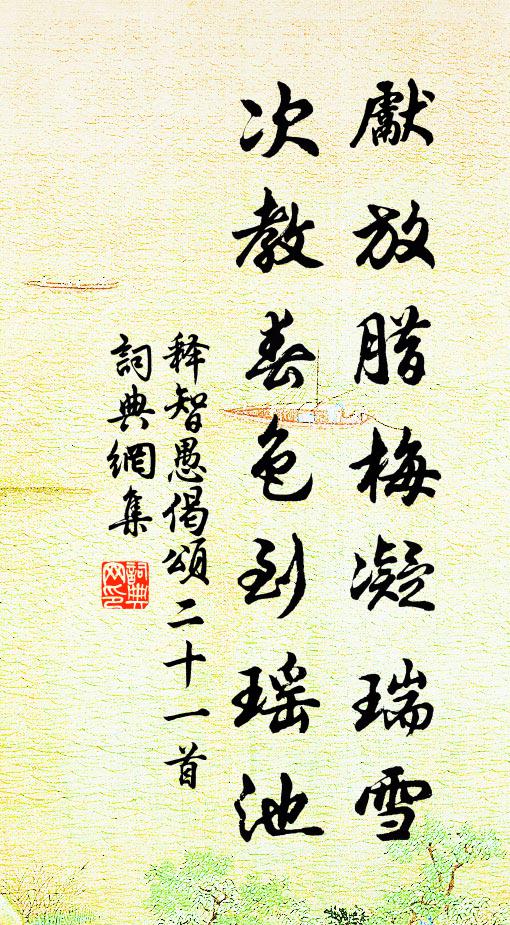 獻放腊梅凝瑞雪
次教春色到瑶池
释智愚偈頌二十一首
詞典網集
詞典網印